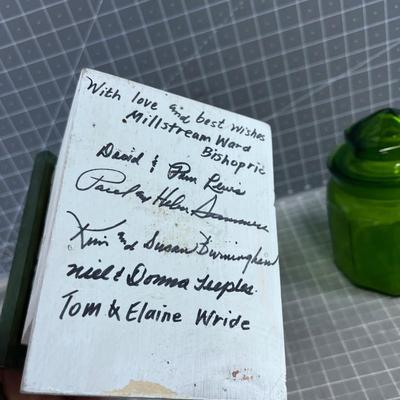 With love and best wishes
Millstream Ward
Bishopric
David & Pam Lewis
Helen
Kim and Susan Burningham
Neil & Donna Peeples
Tom & Elaine Wride